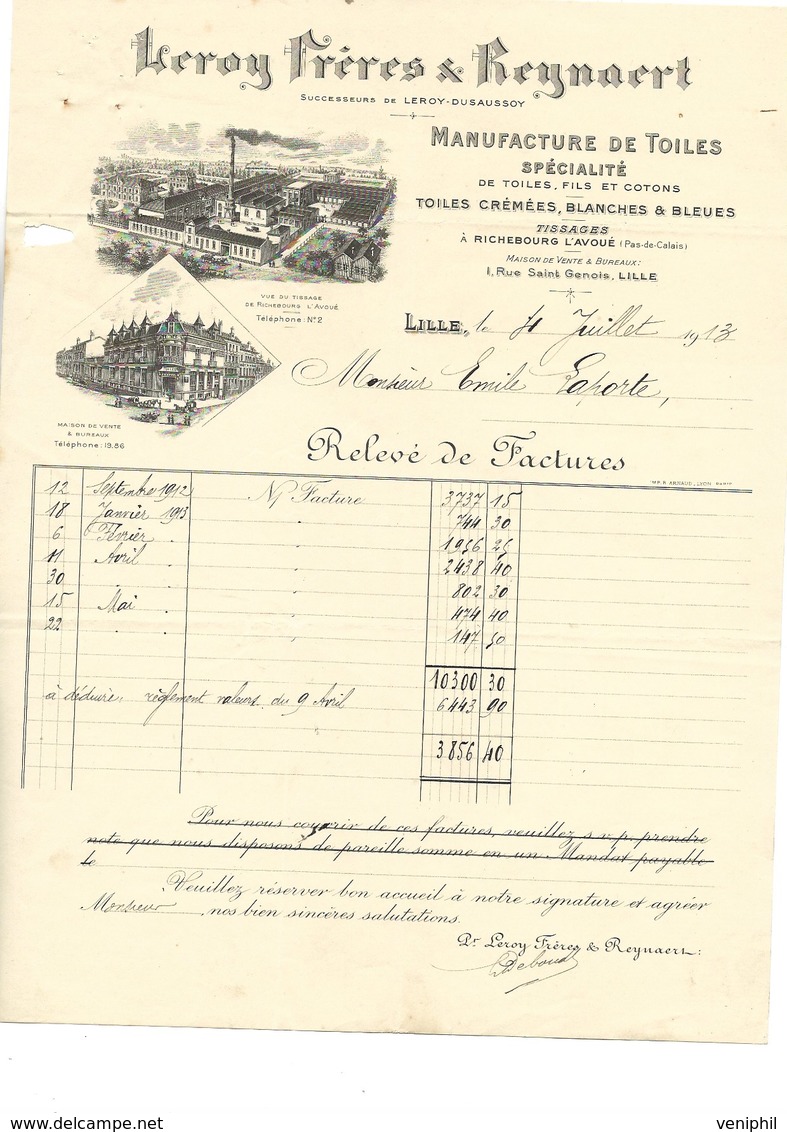 Leroy Frères & Reynaert
SUCCESSEURS DE LEROY-DUSAUSSOY
MANUFACTURE DE TOILES
SPÉCIALITÉ
DE TOILES, FILS ET COTONS
TOILES CRÉMÉES, BLANCHES & BLEUES
TISSAGES
À RICHEBOURG L'AVOUÉ (Pas-de-Calais)
MAISON DE VENTE & BUREAUX:
1, Rue Saint Genois, LILLE
VUE DU TISSAGE
DE RICHEBOURG L'AVOUÉ
Téléphone: N°2
MAISON DE VENTE
& BUREAUX
Téléphone: 19.86
LILLE, le 4 Juillet 1913
Monsieur Emile Laporte,
Relevé de Factures
IMP. B. ARNAUD, LYON PARIS
12 Septembre 1912 N/ Facture 3737 15
18 Janvier 1913 " 744 30
6 Février . " 1956 25
11 Avril . " 2438 40
30 . . " 802 30
15 Mai . " 474 40
22 . . " 147 50
10300 30
à déduire, règlement valeurs du 9 Avril 6443 90
3856 40
Pour nous couvrir de ces factures, veuillez s.v.p. prendre
note que nous disposons de pareille somme en un Mandat payable
le
Veuillez réserver bon accueil à notre signature et agréer
Monsieur, nos bien sincères salutations.
Pr. Leroy Frères & Reynaert:
veniphil